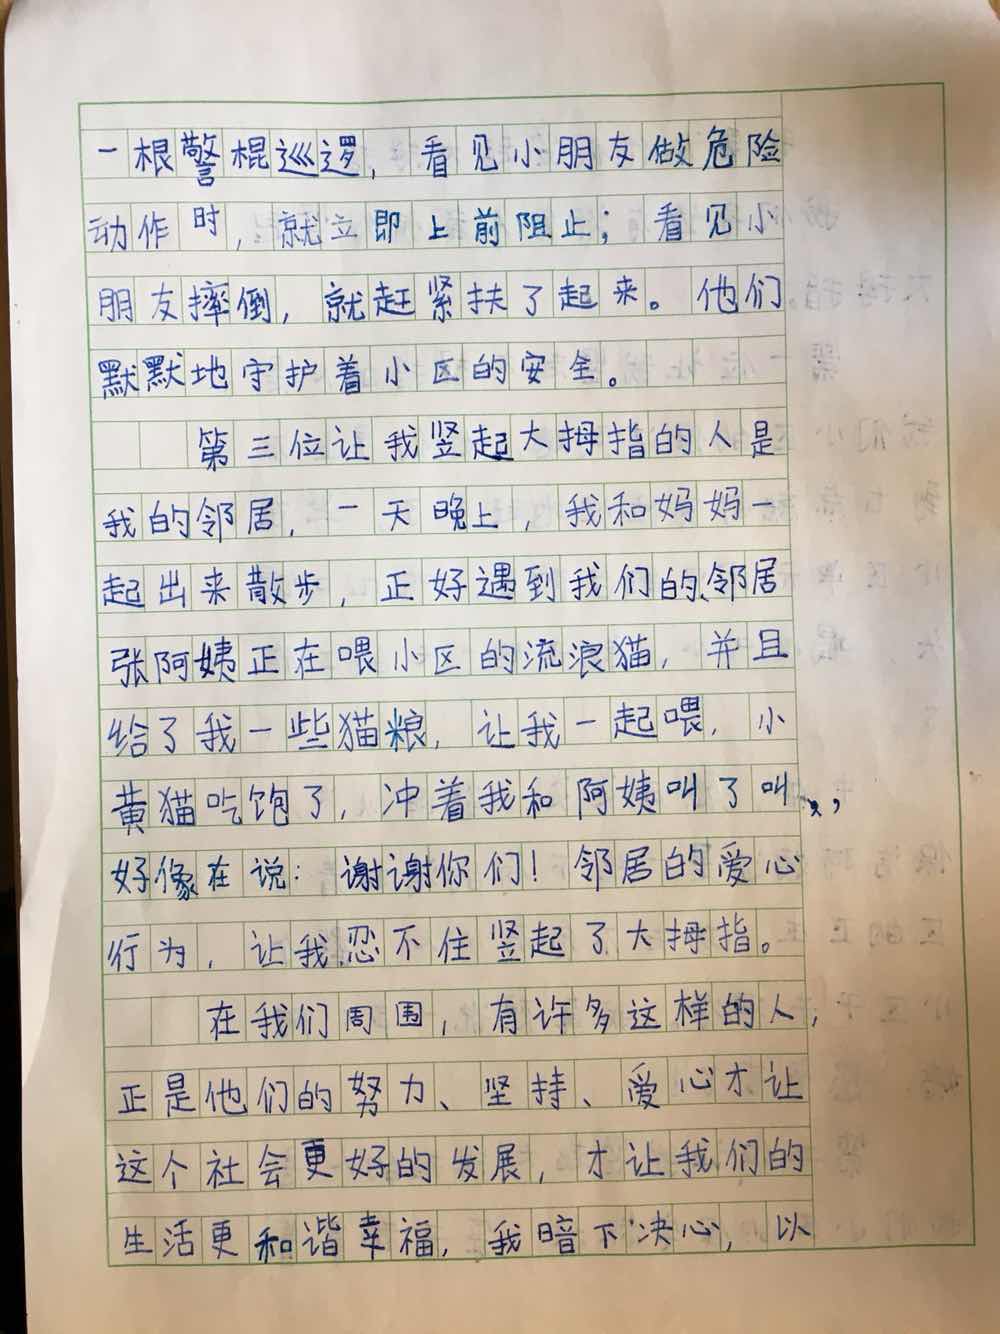 一根警棍巡逻，看见小朋友做危险
动作时，就立即上前阻止；看见小
朋友摔倒，就赶紧扶了起来。他们
默默地守护着小区的安全。
第三位让我竖起大拇指的人是
我的邻居，一天晚上，我和妈妈一
起出来散步，正好遇到我们的邻居
张阿姨正在喂小区的流浪猫，并且
给了我一些猫粮，让我一起喂，小
黄猫吃饱了，冲着我和阿姨叫了叫，
好像在说：谢谢你们！邻居的爱心
行为，让我忍不住竖起了大拇指。
在我们周围，有许多这样的人，
正是他们的努力、坚持、爱心才让
这个社会更好的发展，才让我们的
生活更和谐幸福，我暗下决心，以